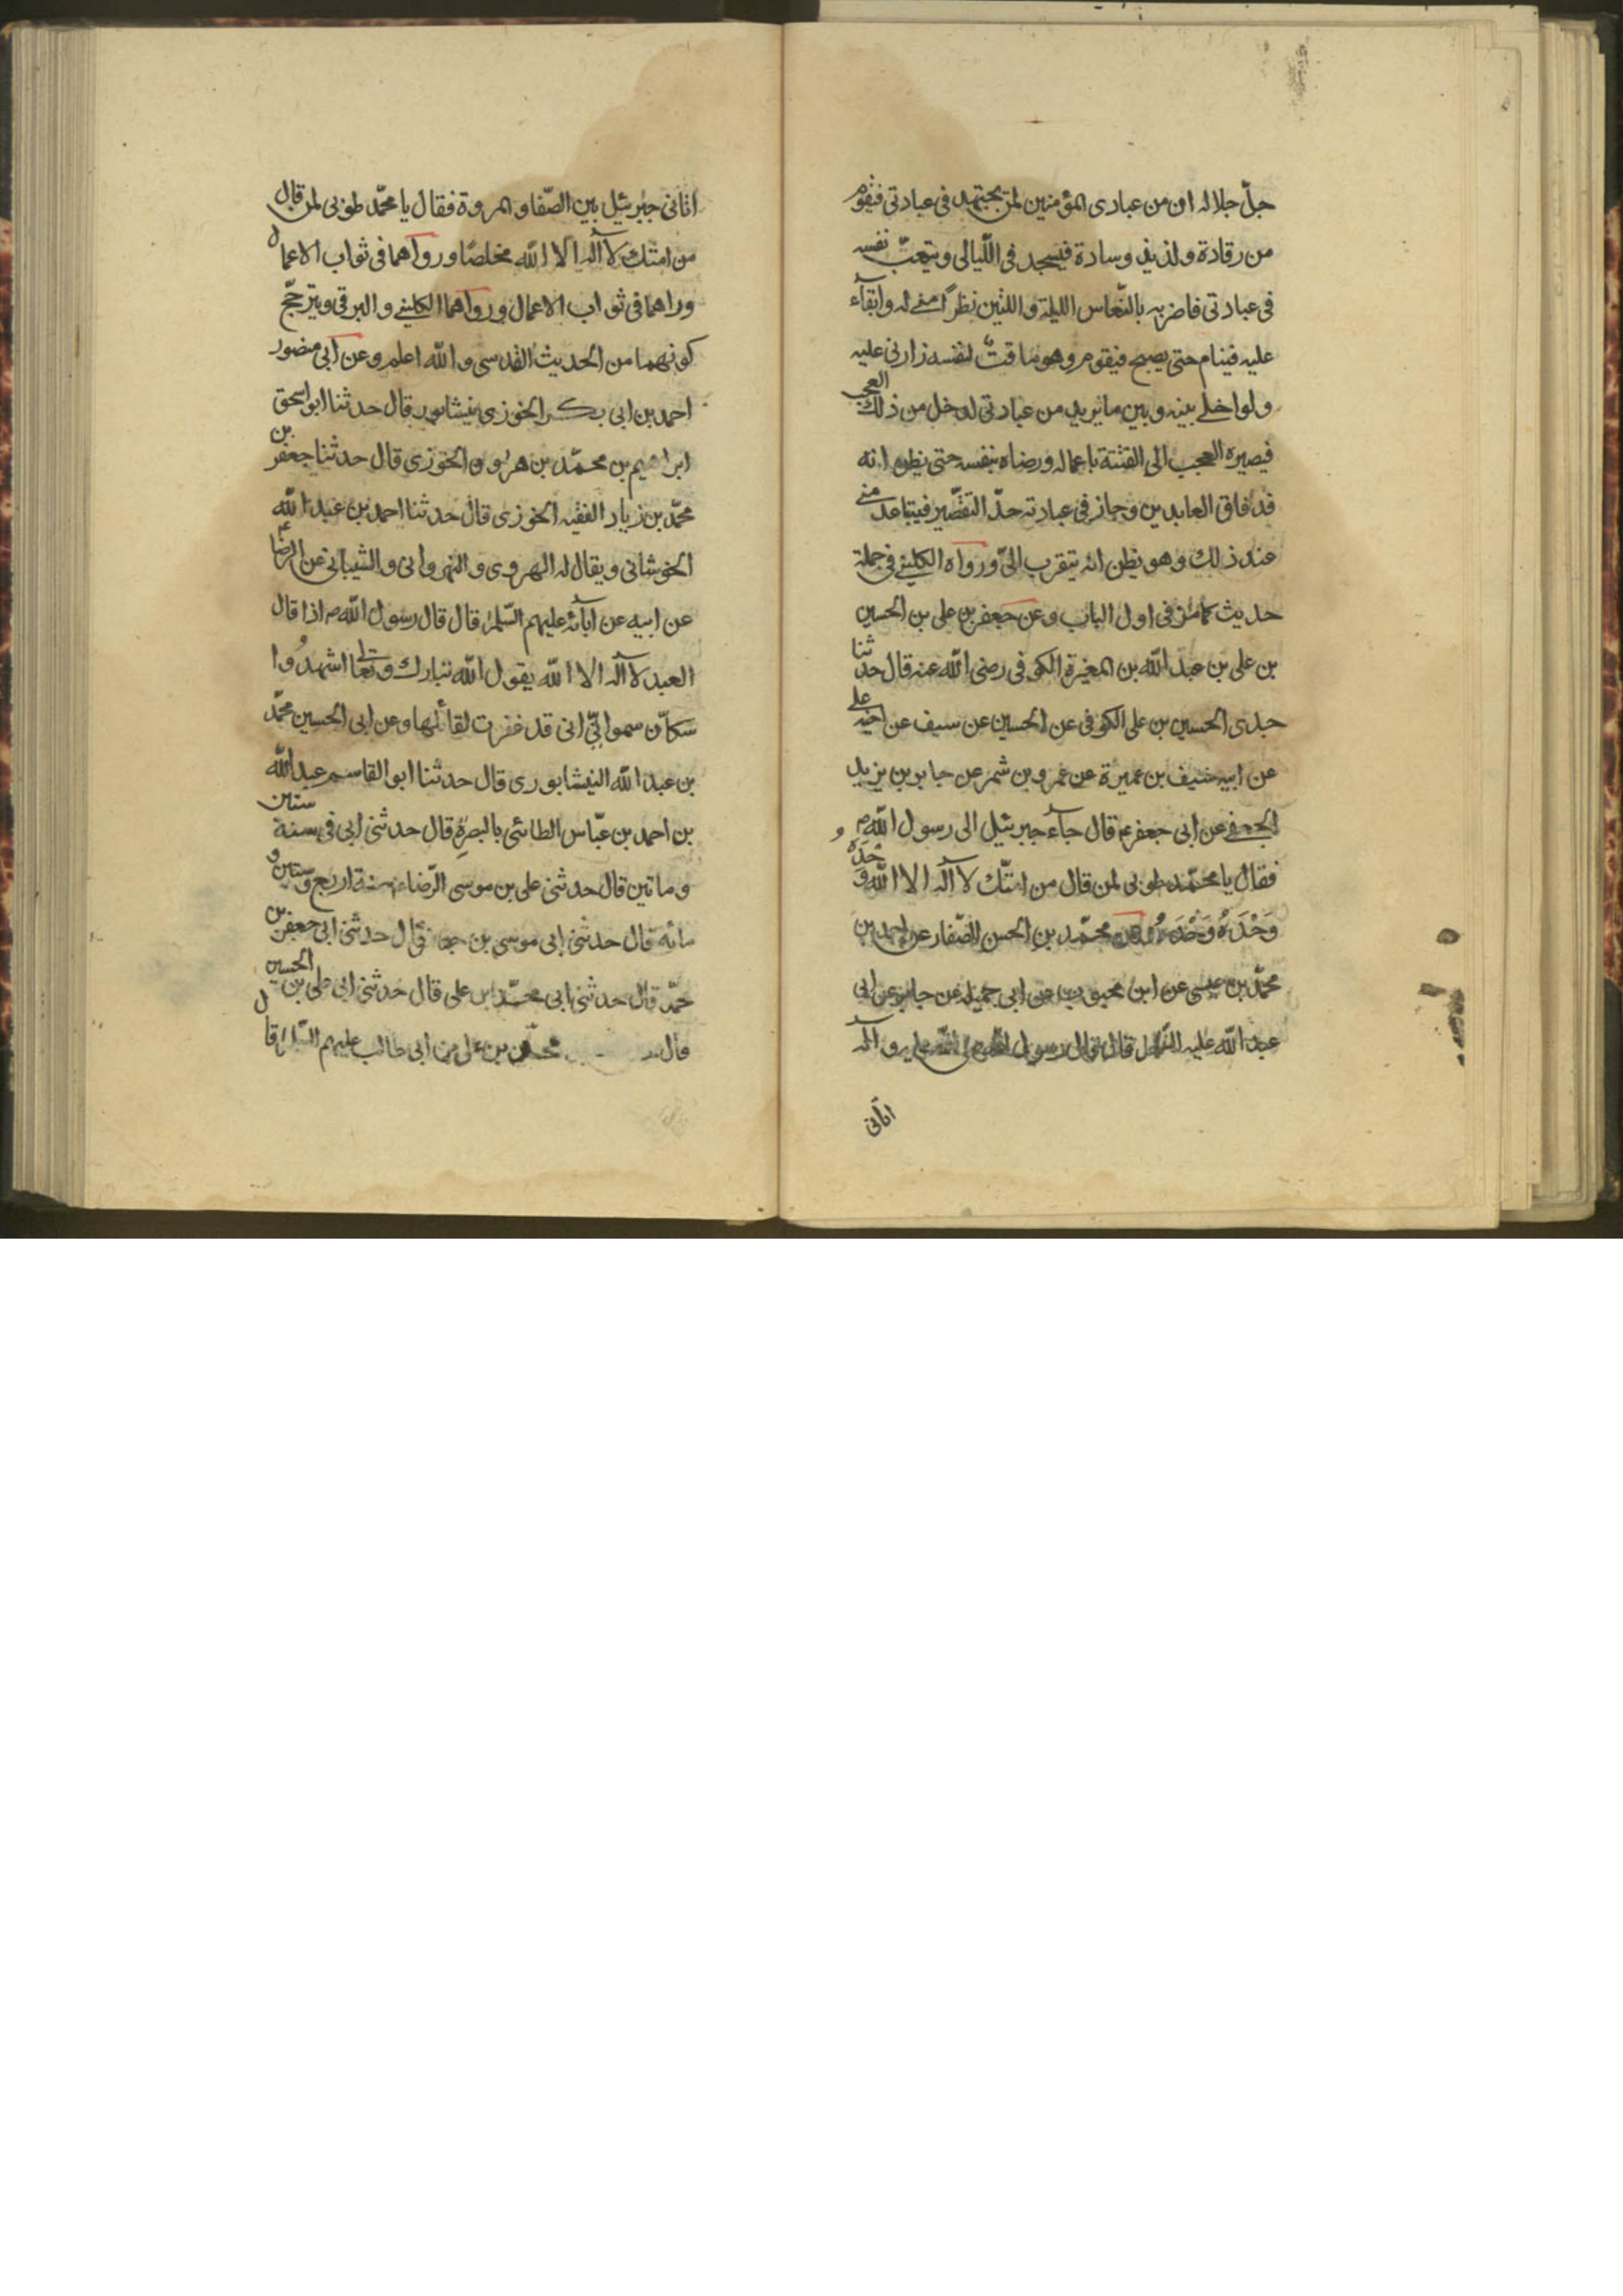 جلّ جلاله ان من عبادى المؤمنين لمن يجتهد فى عبادتى فيقوم
من رقادة ولذيذ وسادة فيسجد فى اللّيالى ويتعب نفسه
فى عبادتى فاضربه بالنّعاس الليلة والليلتين نظراً منى له وابقآء
عليه فينام حتى يصبح فيقوم وهو ماقت لنفسه زارئ عليه
ولو اخلى بينه وبين ما يريد من عبادتى لدخل من ذلك العجب
فيصيره العجب الى الفتنة باعماله ورضاه بنفسه حتى يظن انه
قد فاق العابدين وجاز فى عبادته حدّ التقصير فيتباعد منى
عند ذلك وهو يظن انه يتقرب الىّ ورواه الكلينى فى جملة
حديث كما مر فى اول الباب وعن جعفر بن على بن الحسين
بن على بن عبد الله بن المغيرة الكوفى رضى الله عنه قال حدثنا
جدى الحسين بن على الكوفى عن الحسين عن سيف عن اخيه على
عن ابيه سيف بن عميرة عن عمرو بن شمر عن جابر بن يزيد
الجعفى عن ابى جعفر ع قال جآء جبرئيل الى رسول الله ص
فقال يا محمّد طوبى لمن قال من امتّك لآ اله الا الله وحده
وَحْدَهُ وَحْدَهُ وعن محمّد بن الحسن الصّفار عن احمد بن
محمّد بن عيسى عن ابن محبوب عن ابى جميلة عن جابر عن ابى
عبد الله عليه السّلام قال قال رسول الله صلى الله عليه وآله
اتانى
اتانى جبرئيل بين الصّفا والمروة فقال يا محمّد طوبى لمن قال
من امتك لآ اله الا الله مخلصًا ورواهما فى ثواب الاعمال
وراهما فى ثواب الاعمال ورواهما الكلينى والبرقى ويترجّح
كونهما من الحديث القدسى والله اعلم وعن ابى منصور
احمد بن ابى بكر الخوزى بنيشابور قال حدثنا ابو اسحق
ابراهيم بن محمّد بن هرون الخوزى قال حدثنا جعفر بن
محمّد بن زياد الفقيه الخوزى قال حدثنا احمد بن عبد الله
الخوشانى ويقال له الهروى والنهروانى والشيبانى عن الرضا ع
عن ابيه عن آبائه عليهم السّلم قال قال رسول الله ص اذا قال
العبد لآ اله الا الله يقول الله تبارك وتعالى اشهدُوا
سكاّن سمواتىّ انى قد غفرت لقائلها وعن ابى الحسين محمّد
بن عبد الله النيشابورى قال حدثنا ابو القاسم عبد الله
بن احمد بن عبّاس الطائى بالبصرة قال حدثنى ابى فى سنة ستين
وماتين قال حدثنى على بن موسى الرّضاء سنة اربع وستين و
مائة قال حدثنى ابى موسى بن جعفر قال حدثنى ابى جعفر بن
محمّد قال حدثنى ابى محمّد بن على قال حدثنى ابى على بن الحسين
قال بن على بن ابى طالب عليهم السّلام قال